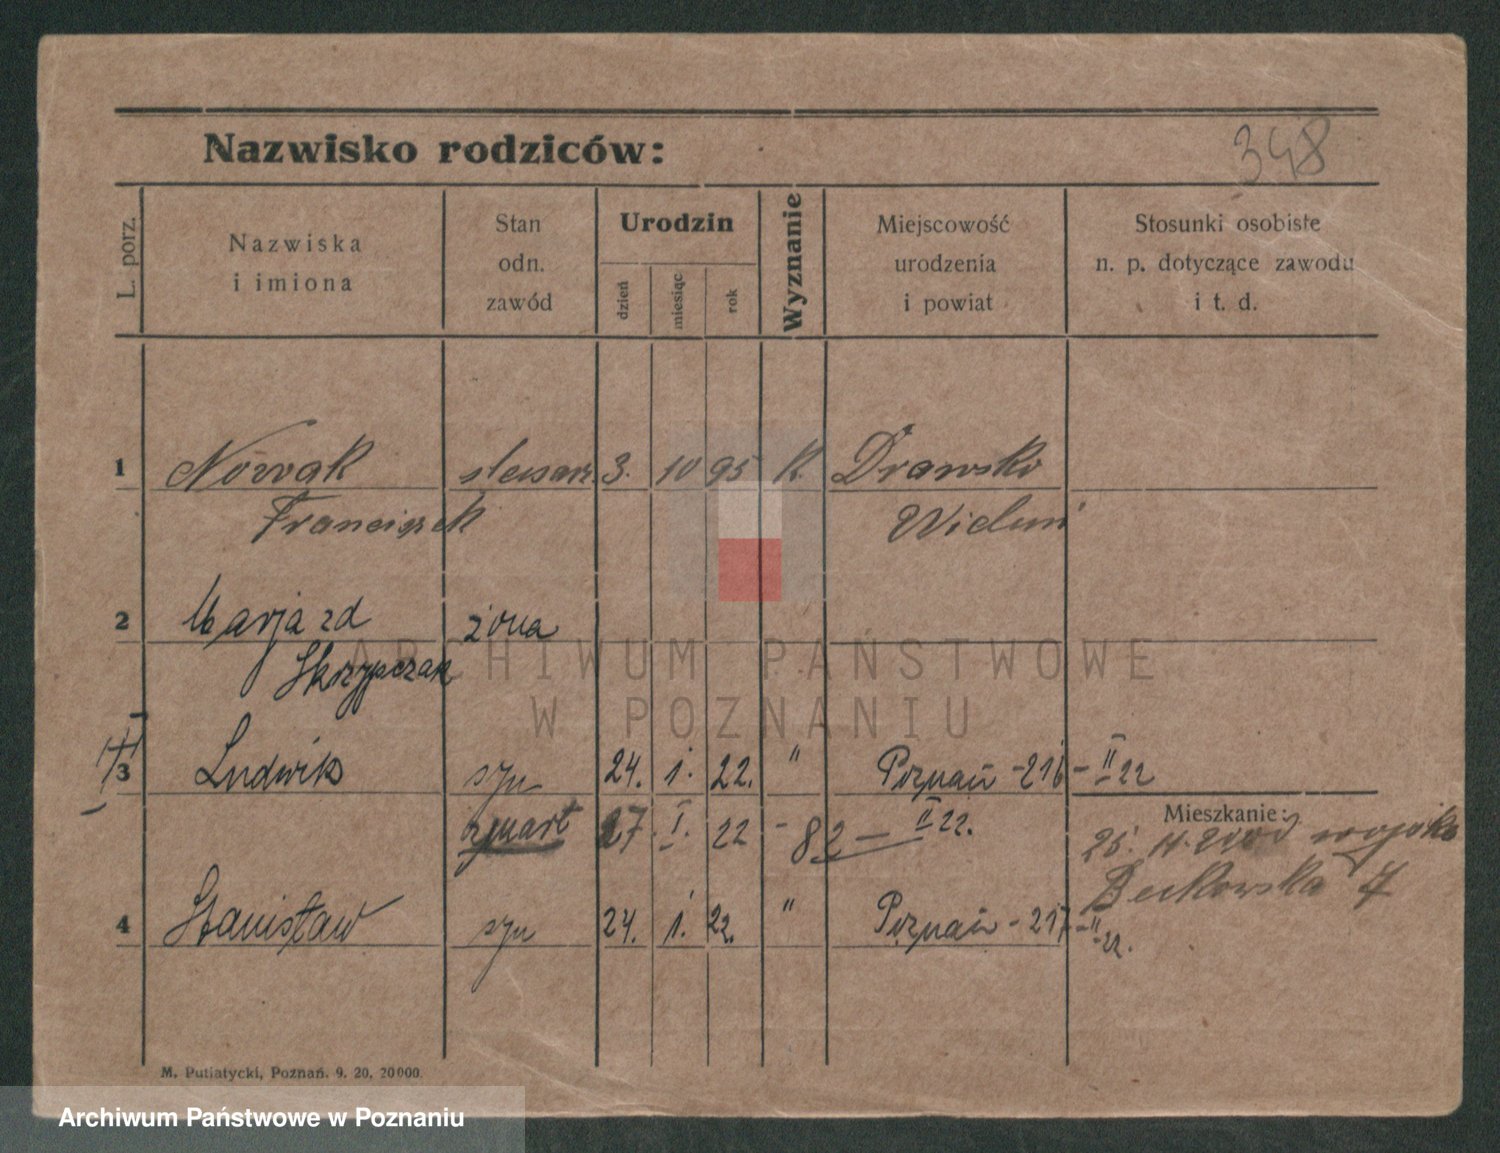 348
Nazwisko rodziców:
L. porz.
Nazwiska
i imiona
Stan
odn.
zawód
Urodzin
dzień
miesiąc
rok
Wyznanie
Miejscowość
urodzenia
i powiat
Stosunki osobiste
n. p. dotyczące zawodu
i t. d.
1 Nowak
Franciszek
3. 10 95 K. Drawsko
Wieluń
2 Marja zd żona
Skrzypczak
3 Ludwik syn 24. 1. 22. " Poznań - 216 - II 22
zmart 27. I. 22 - 82 - II 22.
Mieszkanie:
wojsko
7
4 Stanisław syn 24. 1. 22. " Poznań - 217 - II - 22.
M. Putiatycki, Poznań. 9. 20. 20000.
ARCHIWUM PAŃSTWOWE
W POZNANIU
Archiwum Państwowe w Poznaniu